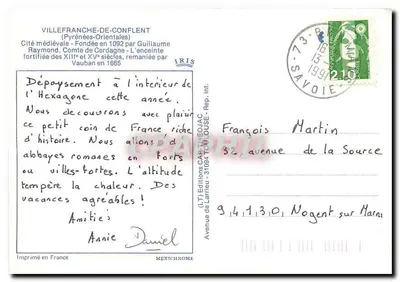 VILLEFRANCHE-DE-CONFLENT
(Pyrénées-Orientales)
Cité médiévale - Fondée en 1092 par Guillaume
Raymond, Comte de Cerdagne - L'enceinte
fortifiée des XIIIe et XVe siècles, remaniée par
Vauban en 1665
IRIS
Dépaysement à l'intérieur de
l'Hexagone cette année.
Nous découvrons avec plaisir
ce petit coin de France riche
d'histoire. Nous allons d'
abbayes romanes en forts
ou villes-fortes. L'altitude
tempère la chaleur. Des
vacances agréables !
Amitiés
Annie Daniel
Imprimé en France
MEXICHROME
(LT) Editions
Avenue de Larrieu - 31094 TOULOUSE - Rep. int.
73
13
1991
SAVOIE
2,10
François Martin
32, avenue de la Source
94130 Nogent sur Marne